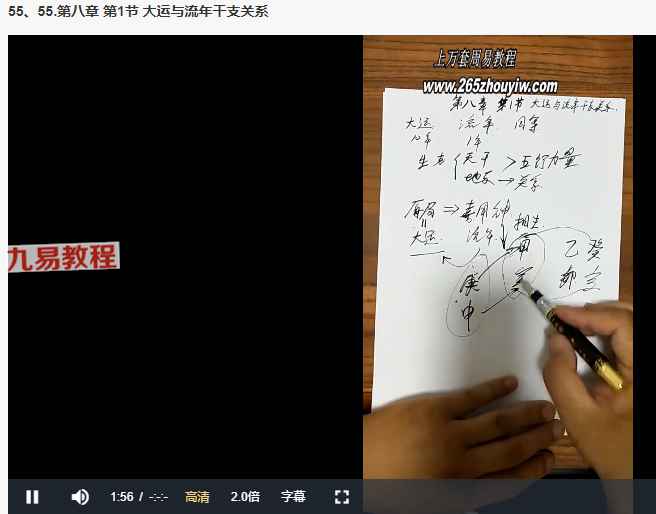 55、55.第八章 第1节 大运与流年干支关系
上万套周易教程
www.265zhouyiw.com
第八章 第1节 大运与流年干支关系
大运 流年 同等
10年 1年
生克 天干 > 五行力量
地支 → 关系
原局 ⇒ 喜用神
大运 流年
相生
甲 乙 癸
寅 卯
庚
申
九易教程
1:56 / -:-:-
高清
2.0倍
字幕